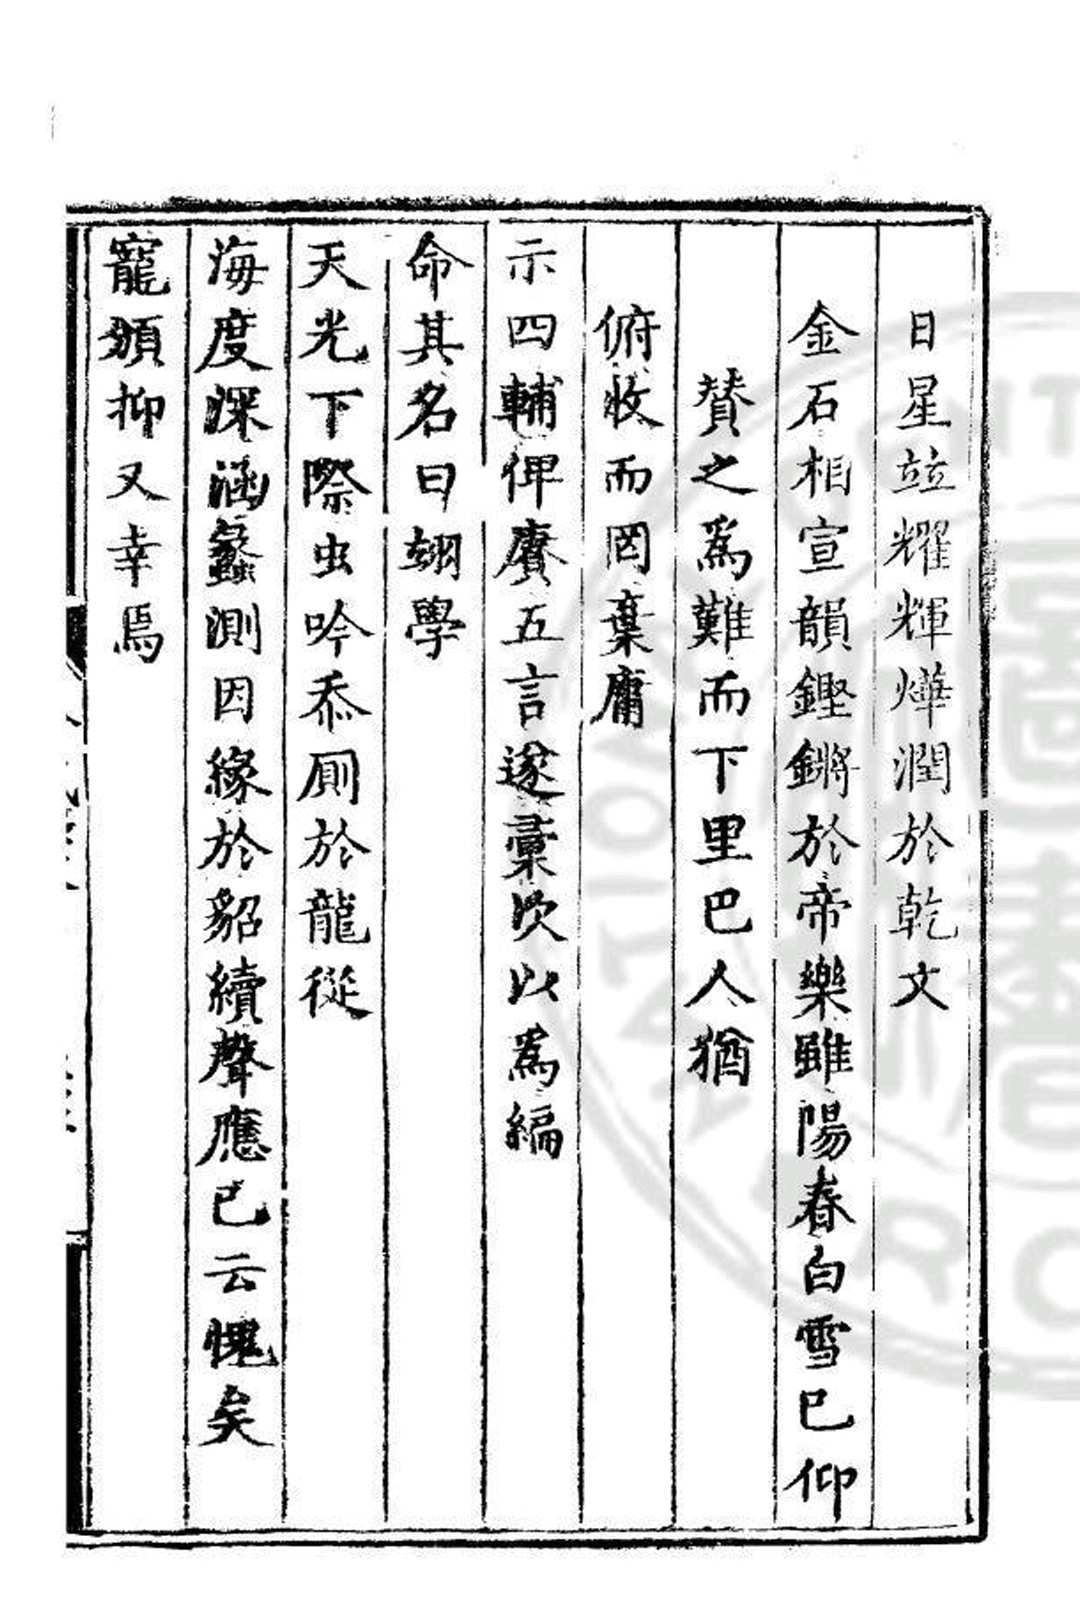 日星竝耀輝燁潤於乾文
金石相宣韻鏗鏘於帝樂雖陽春白雪已仰
賛之為難而下里巴人猶
俯收而罔棄庸
示四輔俾賡五言遂彚次以為編
命其名曰翊學
天光下際虫吟忝厠於龍從
海度深涵蠡測因緣於貂續聲應已云愧矣
寵頒抑又幸焉